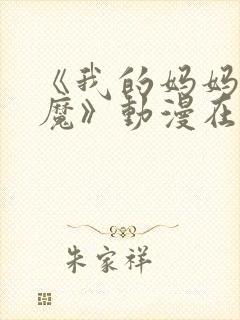 《我的妈妈
魔》動漫在
朱家祥